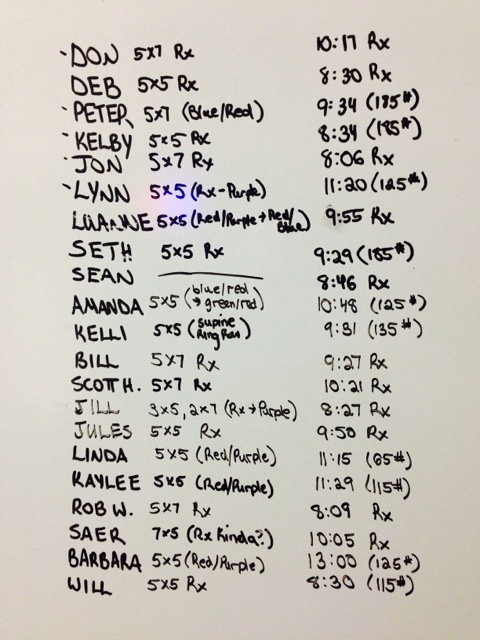 DON 5x7 Rx 10:17 Rx
DEB 5x5 Rx 8:30 Rx
PETER 5x7 (Blue/Red) 9:34 (185#)
KELBY 5x5 Rx 8:34 (185#)
JON 5x7 Rx 8:06 Rx
LYNN 5x5 (Rx-Purple) 11:20 (125#)
LUANNE 5x5 (Red/Purple→Red/Blue) 9:55 Rx
SETH 5x5 Rx 9:29 (185#)
SEAN 8:46 Rx
AMANDA 5x5 (blue/red → green/red) 10:48 (125#)
KELLI 5x5 (supine Ring Row) 9:31 (135#)
BILL 5x7 Rx 9:27 Rx
SCOTT H. 5x7 Rx 10:21 Rx
JILL 3x5, 2x7 (Rx→Purple) 8:27 Rx
JULES 5x5 Rx 9:50 Rx
LINDA 5x5 (Red/Purple) 11:15 (85#)
KAYLEE 5x5 (Red/Purple) 11:29 (115#)
ROB W. 5x7 Rx 8:09 Rx
SAER 7x5 (Rx Kinda?) 10:05 Rx
BARBARA 5x5 (Red/Purple) 13:00 (125#)
WILL 5x5 Rx 8:30 (115#)